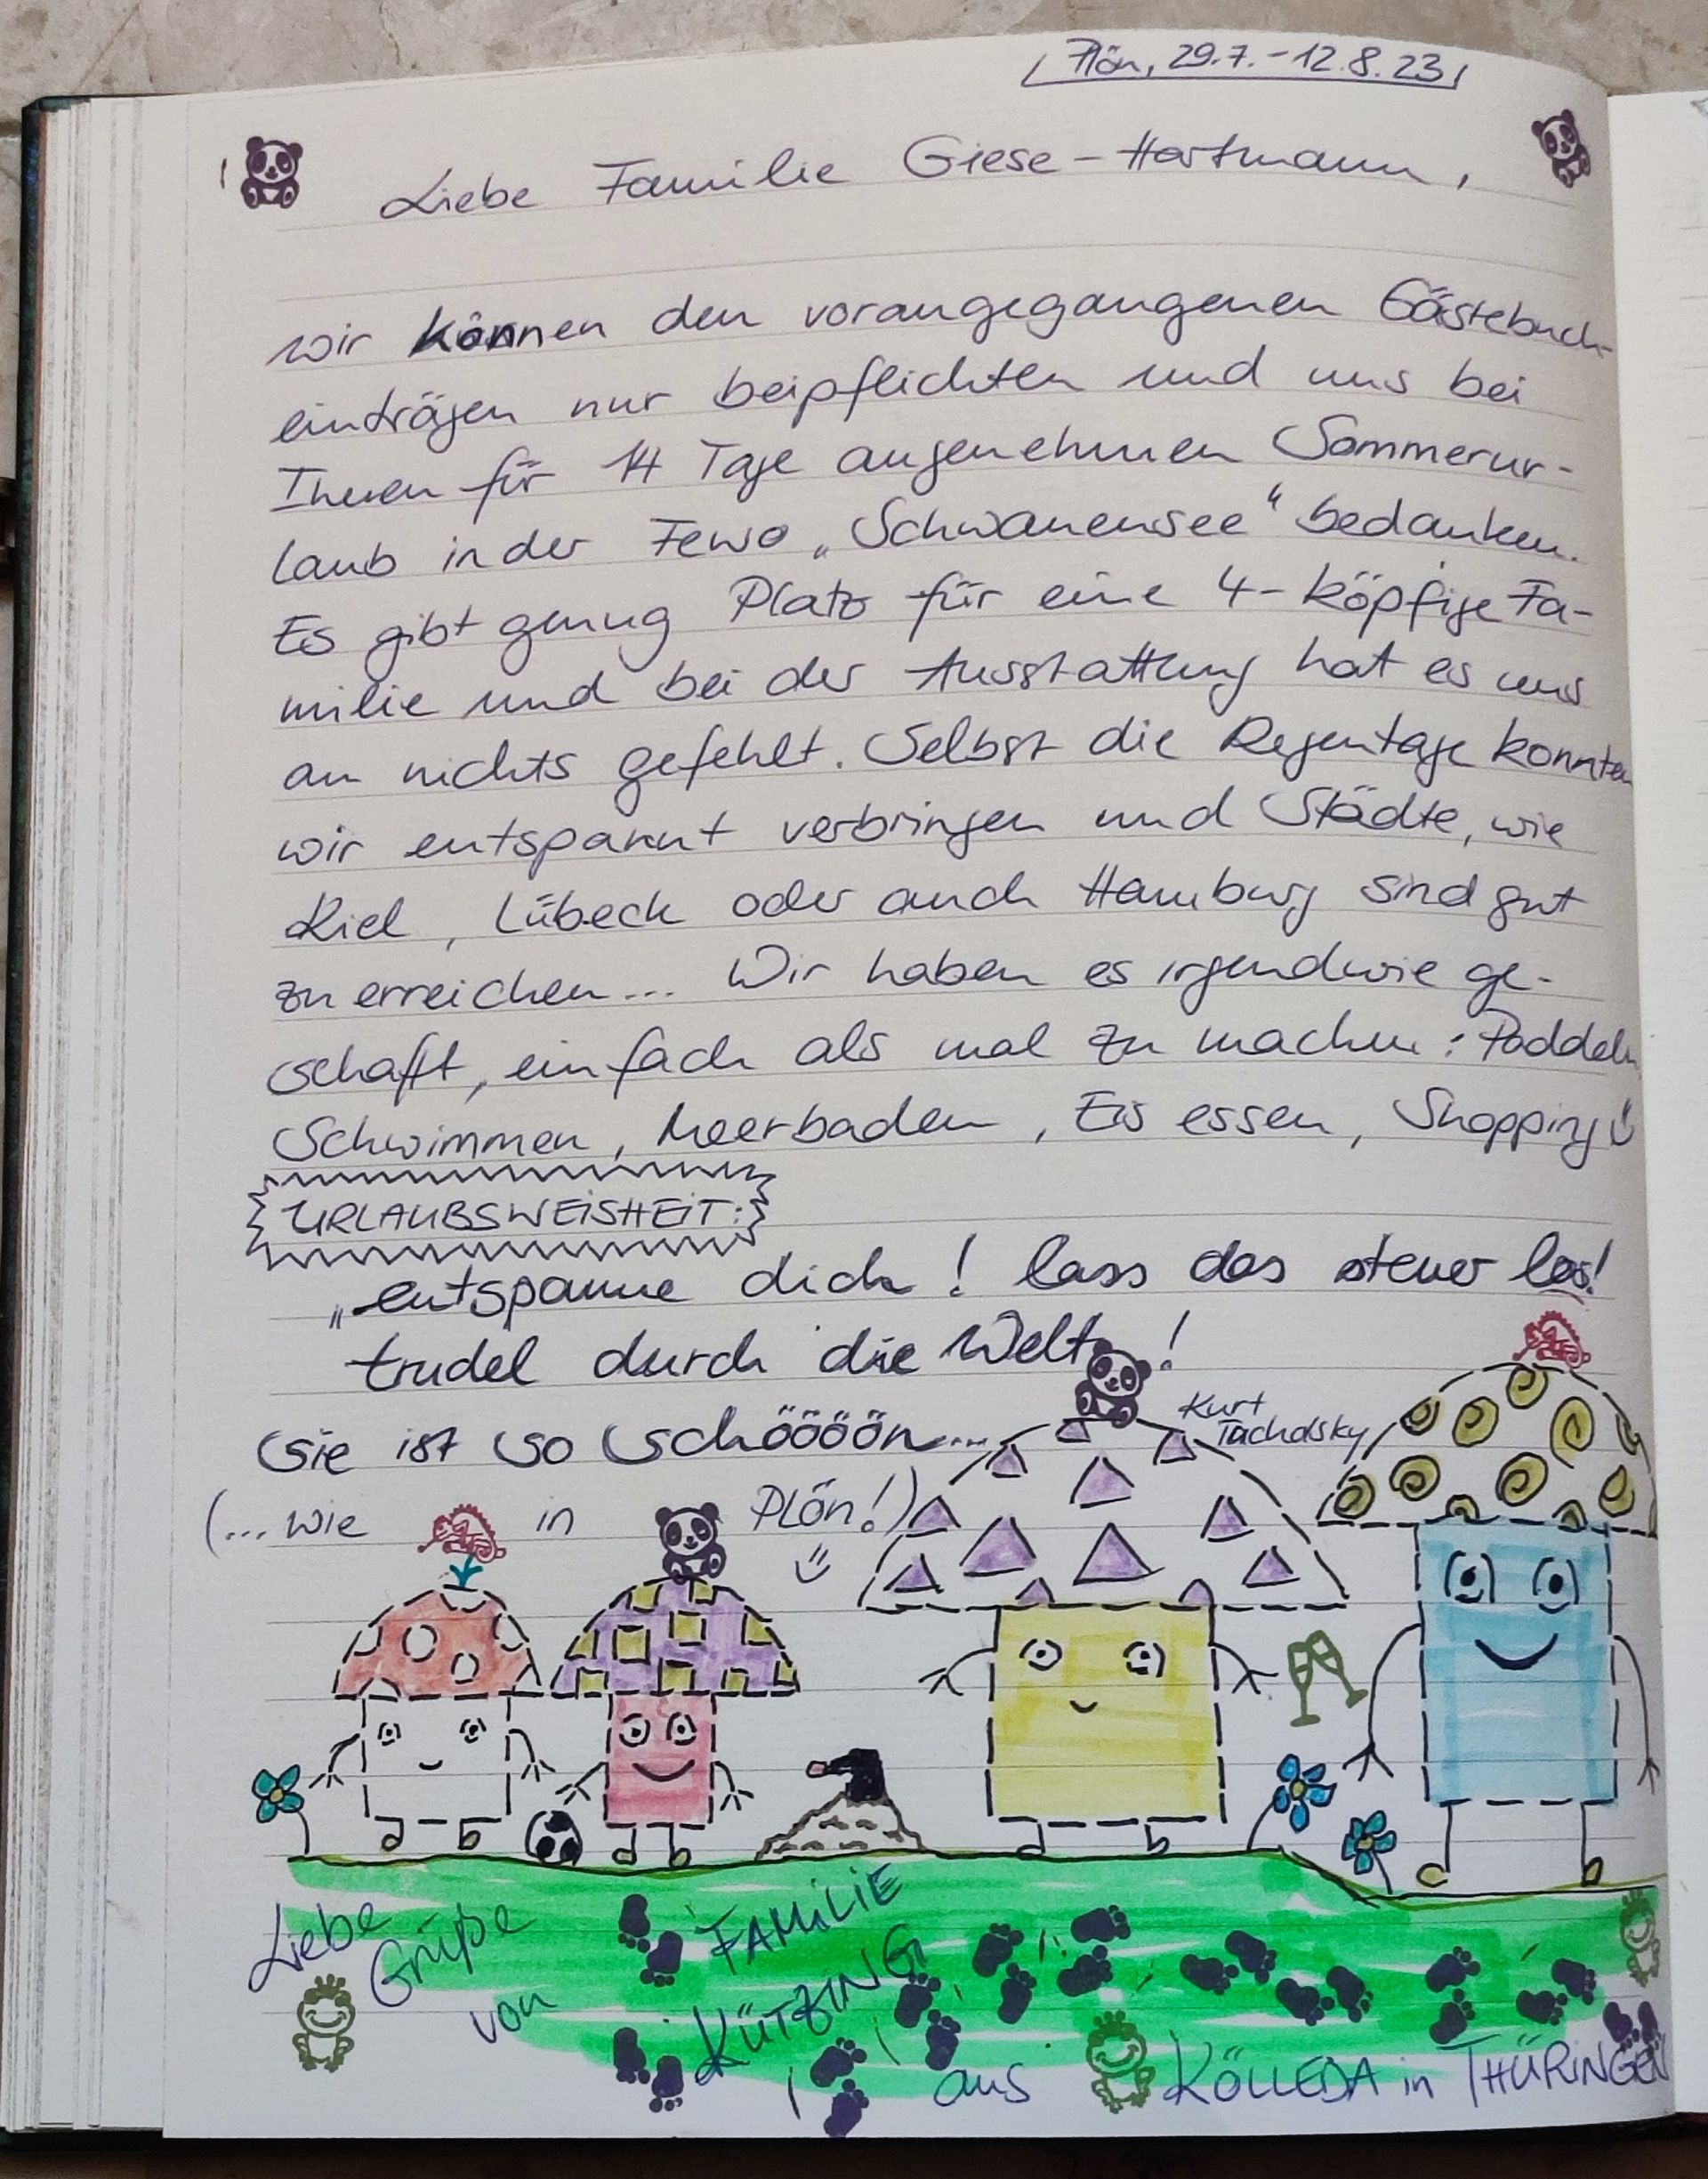 Plön, 29.7.-12.8.23
Liebe Familie Giese-Hartmann,
wir können den vorangegangenen Gästebuch-
einträgen nur beipflichten und uns bei
Ihnen für 14 Tage angenehmen Sommerur-
laub in der Fewo „Schwanensee“ bedanken.
Es gibt genug Platz für eine 4-köpfige Fa-
milie und bei der Ausstattung hat es uns
an nichts gefehlt. Selbst die Regentage konnten
wir entspannt verbringen und Städte, wie
Kiel, Lübeck oder auch Hamburg sind gut
zu erreichen... Wir haben es irgendwie ge-
schafft, einfach als mal zu machen: Paddeln
Schwimmen, Meerbaden, Eis essen, Shopping
URLAUBSWEISHEIT:
„entspanne dich! lass das steuer los!
trudel durch die Welt!
sie ist so schöööön...
Kurt
Tucholsky
(...wie in Plön!)
Liebe
Grüße
von
FAMILIE
KÜTZING
aus KÖLLEDA in THÜRINGEN